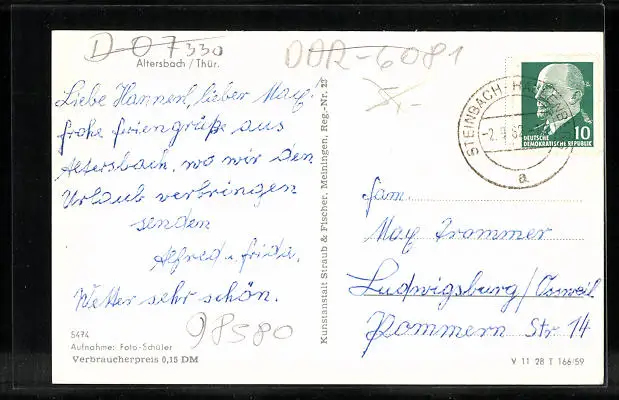 D 07330
DDR-6081
Altersbach / Thür.
Liebe Hannerl, lieber Max.
frohe Feriengrüße aus
Altersbach, wo wir den
Urlaub verbringen
senden
Alfred u. Frida.
Wetter sehr schön.
98580
5474
Aufnahme: Foto-Schüler
Verbraucherpreis 0,15 DM
Kunstanstalt Straub & Fischer, Meiningen, Reg.-Nr. 23
STEINBACH-HALLENBERG
a
10
DEUTSCHE
DEMOKRATISCHE REPUBLIK
Fam.
Max Trommer
Ludwigsburg/Ossweil
Pommern Str. 14
V 11 28 T 166/59